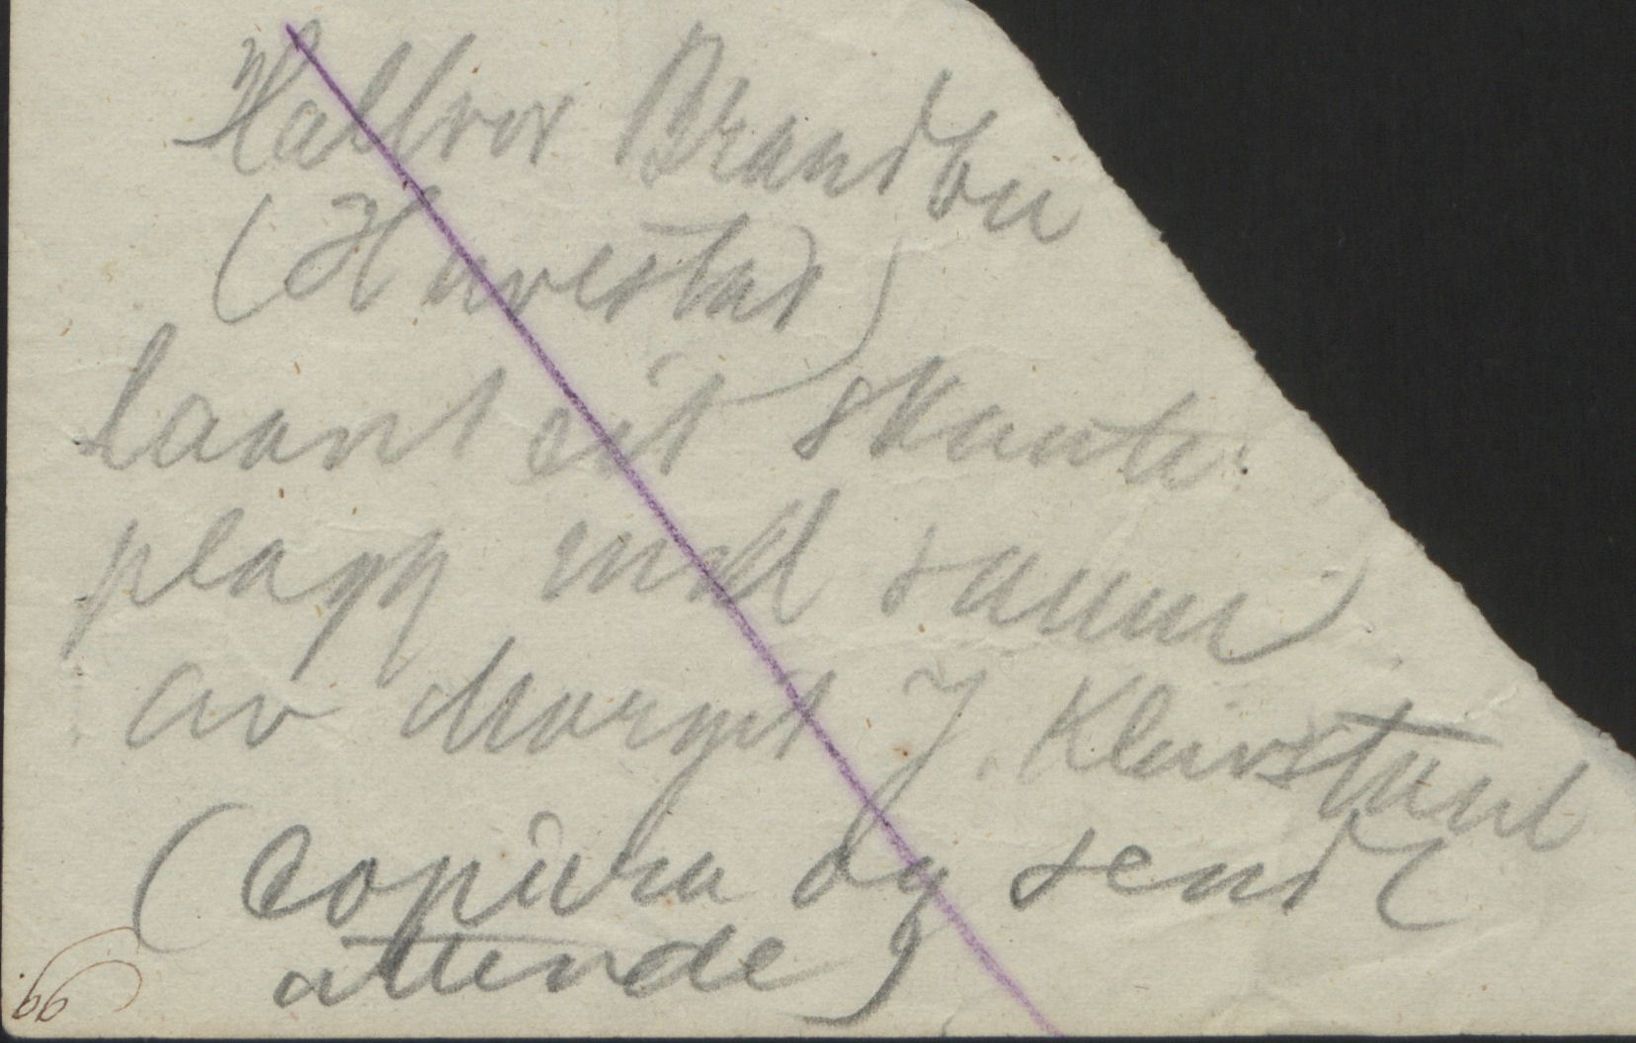 Hallvor Brandbu
(Huvestad)
laant eit skaute-
plagg med saum
av Margit J. Kleivstaul
(Copiera og sendt
attende)
66